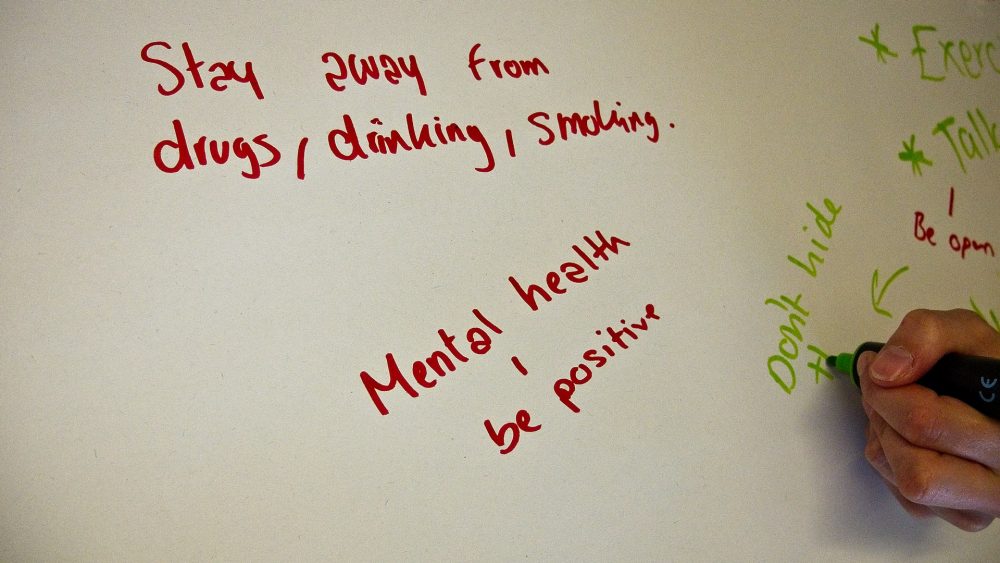 Stay away from
drugs, drinking, smoking.
Mental health
be positive
* Exerc
* Talk
Be open
Don't hide
CE